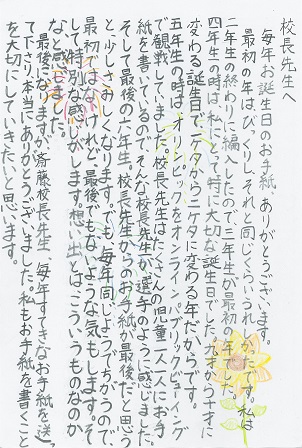 校長先生へ
毎年お誕生日のお手紙、ありがとうございます。
最初の年は、びっくり、それと同じくらいうれしかったです。私は
二年生の終わりに編入したので、三年生が最初の年でした。
四年生の時は、私にとって特に大切な誕生日でした。九才から十才に
変わる誕生日で一ケタから二ケタに変わる年だからです。
五年生の時は、オリンピックをオンラインパブリックビューイング
で観戦していました。校長先生はたくさんの児童一人一人にお手
紙を書いているので、そんな校長先生が選手のように感じました。
そして最後の六年生。校長先生からのお手紙が最後だと思う
と少しさみしくなります。でも、毎年同じようでちがうので
最初ではないけれど、最後でもないような気もします。そ
して特別な感じがします。想い出とはこういうものなのか
なと感じました。
最後になりますが斎藤校長先生、毎年すてきなお手紙を送って
下さり本当にありがとうございました。私もお手紙を書くこと
を大切にしていきたいと思います。